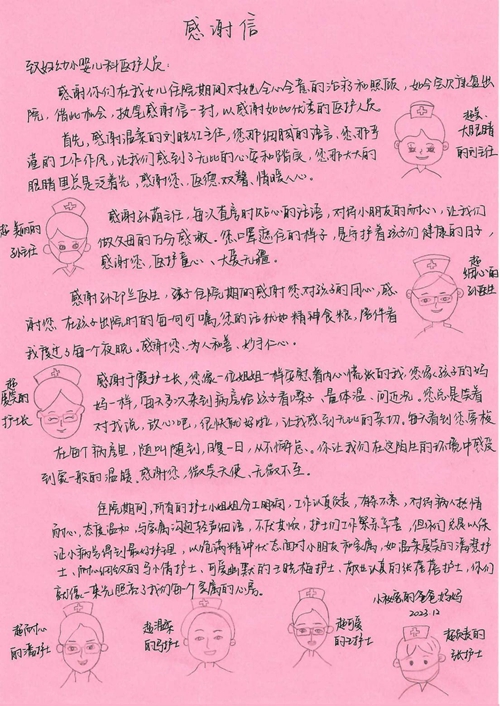 感谢信
致妇幼小婴儿科医护人员:
感谢你们在我女儿住院期间对她全心全意的治疗和照顾,如今会次康复出
院,借此机会,执笔感谢信一封,以感谢如此优秀的医护人员。
首先,感谢温柔的刘晓红主任,您那细腻的语言,您那严
谨的工作作风,让我们感到了无比的心安和踏实,您那大大的
眼睛里总是泛着光,感谢您,医德双馨、情暖人心。
超美、
大眼睛
的刘主任
感谢孙萌主任,每次查房时贴心的话语,对待小朋友的耐心,让我们
做父母的万分感激。您嘱咐的样子,是守护着孩子们健康的日子,
感谢您,医护童心、大爱无疆。
超美丽的
孙主任
感谢孙印兰医生,孩子住院期的感谢您对孩子的用心,感
谢您在孩子出院时的每句叮嘱,您的话犹如精神食粮,陪伴着
我度过了每个夜晚。感谢您、为人和善、妙手仁心。
超
细心的
孙医生
感谢于霞护士长,您像一位姐姐一样安慰着内心慌张的我,您像孩子的妈
妈一样,每天多次来到病房给孩子看嗓子、量体温、问近况。您总是笑着
对我说,放心吧,很快就好啦,让我感到无比的亲切。每次看到您穿梭
在每个病房里,随叫随到,日复一日,从不懈怠。你让我们在这陌生的环境中感受
到家一般的温暖。感谢您,微笑天使、无微不至。
超
爱笑的
护士长
住院期间,所有的护士小姐姐分工明确,工作认真负责,有条不紊,对待病人热情
耐心,态度温和,与家属沟通轻声细语,不厌其烦,护士们工作繁杂辛苦,但你们总是以保
证小病号得到最好护理,以饱满精神状态面对小朋友和家属,如温柔爱笑的潘慧护
士、耐心细致的马小倩护士、可爱幽默的王晓梅护士、敬业认真的张蓓蓓护士,你们
就像一束光照亮了我们每个家属的心房。
小叔宸的爸爸妈妈
2023.12
超耐心
的潘护士
超温柔
的马护士
超可爱
的王护士
超负责的
张护士